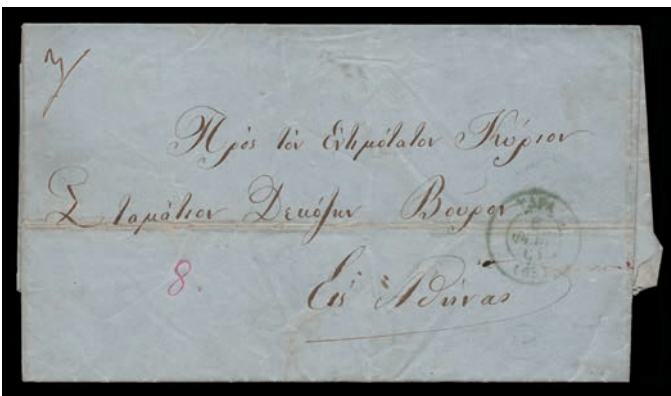 Πρὸς τὸν Ἐντιμότατον Κύριον
Σταμάτιον Δεκόζην Βοῦρον
8.
Εἰς Ἀθήνας